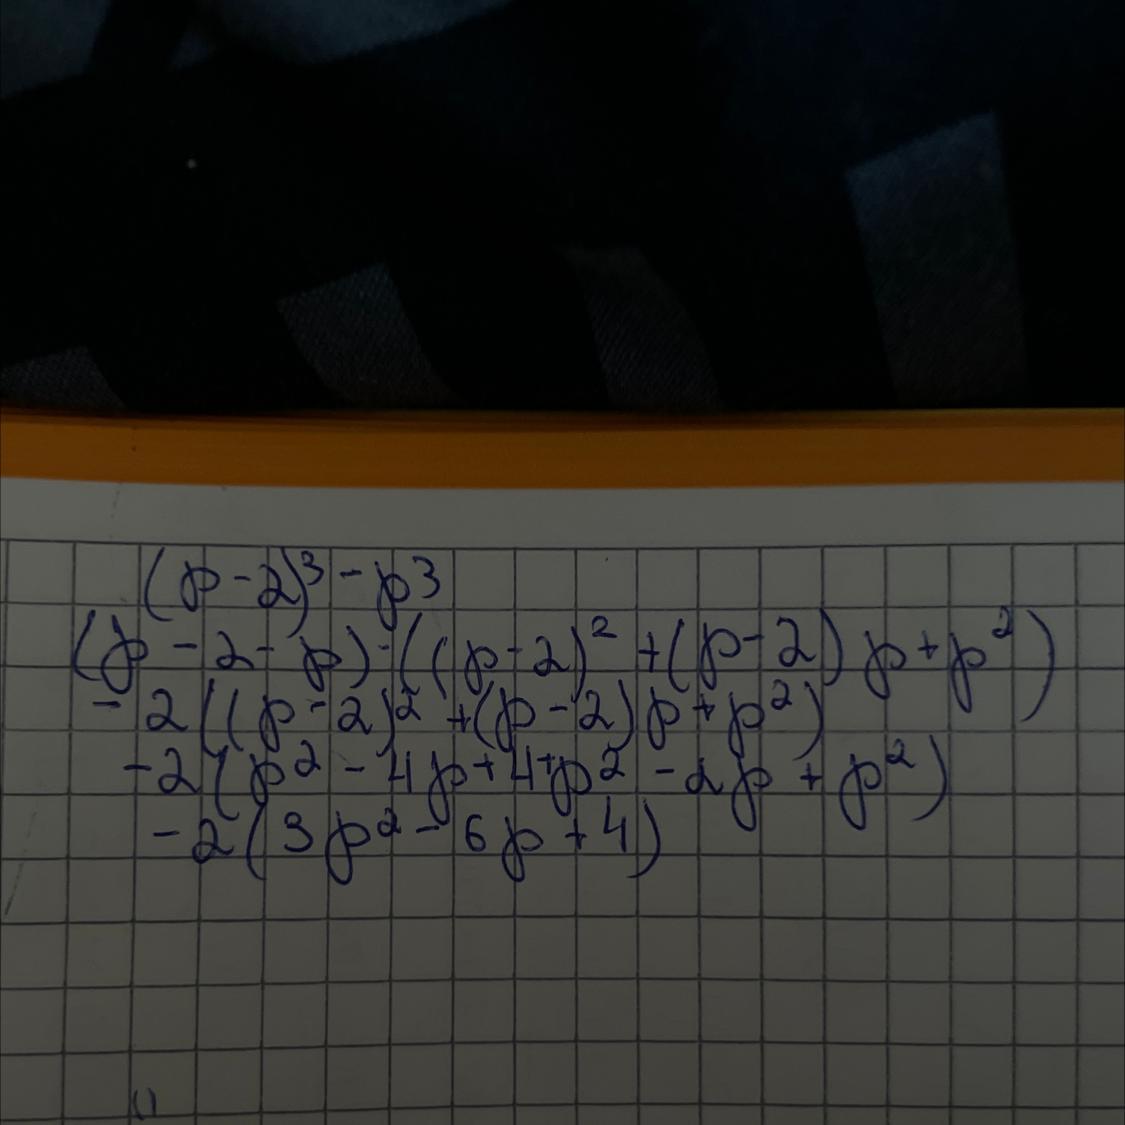 (p-2)³-p³
(p-2-p)·((p-2)²+(p-2)p+p²)
-2((p-2)²+(p-2)p+p²)
-2(p²-4p+4+p²-2p+p²)
-2(3p²-6p+4)